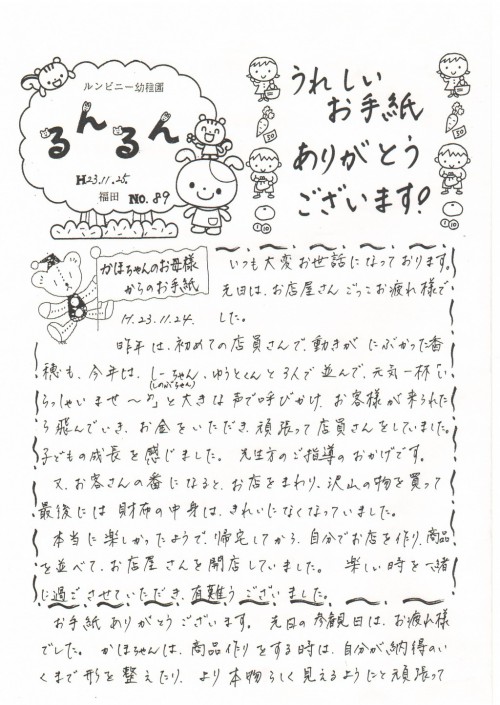 ルンビニー幼稚園
るんるん
H23.11.25.
福田 No.89
うれしい
お手紙
ありがとう
ございます!
かほちゃんのお母様
からのお手紙
H.23.11.24.
いつも大変お世話になっております。
元日は、お店屋さんごっこお疲れ様で
した。
昨年は、初めての店員さんで、動きがにぶかった香
穂も、今年は、しーちゃん、ゆうとくんと3人で並んで、元気一杯「い
(しのぶちゃん)
らっしゃいませ〜♪」と大きな声で呼びかけ、お客様が来られた
ら飛んでいき、お金をいただき、頑張って店員さんをしていました。
子どもの成長を感じました。先生方のご指導のおかげです。
又、お客さんの番になると、お店をまわり、沢山の物を買って
最後には財布の中身は、きれいになくなっていました。
本当に楽しかったようで、帰宅してから、自分でお店を作り、商品
を並べて、お店屋さんを開店していました。楽しい時を一緒
に過ごさせていただき、有難うございました。
お手紙ありがとうございます。元日の参観日は、お疲れ様
でした。かほちゃんは、商品作りをする時は、自分が納得のい
くまで形を整えたり、より本物らしく見えるようにと頑張って